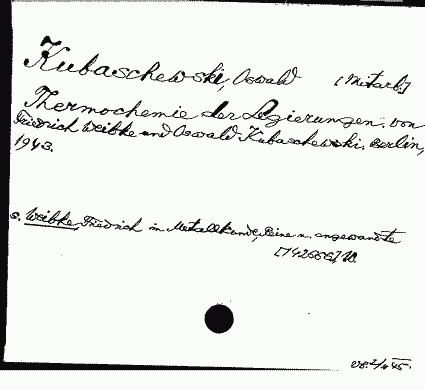 Kubaschewski, Oswald [Mitarb.]
Thermochemie der Legierungen, von
Friedrich Weibke und Oswald Kubaschewski. Berlin,
1943.
s. Weibke, Friedrich in Metallkunde, Reine u. angewandte